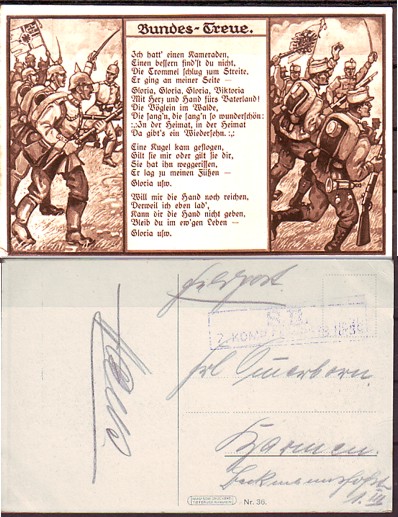 Bundes-Treue.
Ich hatt' einen Kameraden,
Einen bessern find'st du nicht,
Die Trommel schlug zum Streite,
Er ging an meiner Seite —
Gloria, Gloria, Gloria, Viktoria
Mit Herz und Hand fürs Vaterland!
Die Vöglein im Walde,
Die sang'n, die sang'n so wunderschön:
:,:In der Heimat, in der Heimat
Da gibt's ein Wiedersehn. :,:
Eine Kugel kam geflogen,
Gilt sie mir oder gilt sie dir,
Sie hat ihn weggerissen,
Er lag zu meinen Füßen —
Gloria usw.
Will mir die Hand noch reichen,
Derweil ich eben lad',
Kann dir die Hand nicht geben,
Bleib du im ew'gen Leben —
Gloria usw.
Feldpost.
S.B.
Frl
Barmen.
Nr. 36.